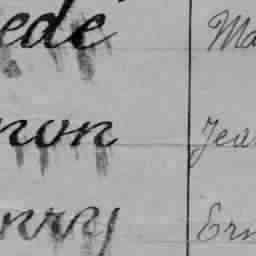 ede Ma
non Jea
nry Ern